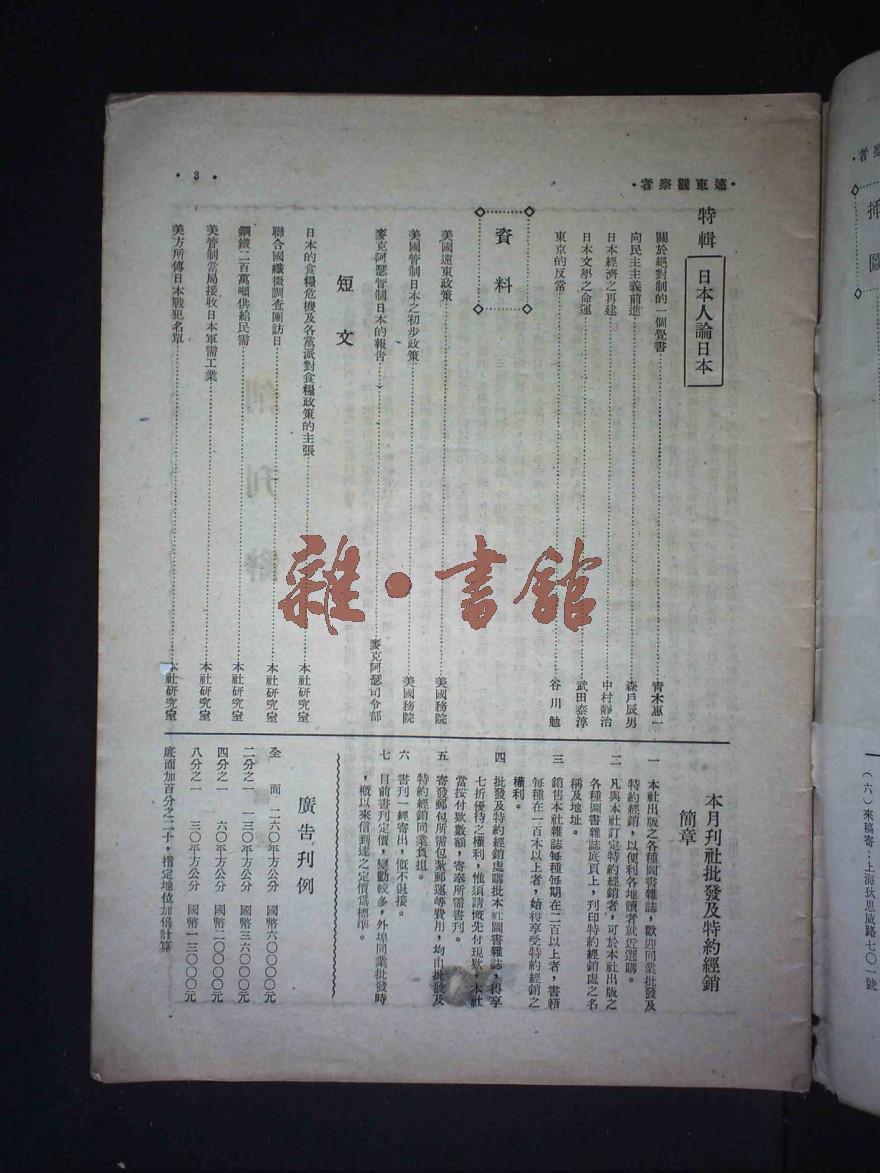 ·遠東觀察者·
·3·
特輯
日本人論日本
關於絕對制的一個覺書 青木惠一
向民主主義前進 森戶辰男
日本經濟之再建 中村靜治
日本文學之命運 武田泰淳
東京的反常 谷川勉
資料
美國遠東政策 美國務院
美國管制日本之初步政策 美國務院
麥克阿瑟管制日本的報告 麥克阿瑟司令部
短文
日本的食糧危機及各黨派對食糧政策的主張 本社研究室
聯合國纖微調查團訪日 本社研究室
鋼鐵二百萬噸供給民需 本社研究室
美管制當局接收日本軍需工業 本社研究室
美方所傳日本戰犯名單 本社研究室
本月刊社批發及特約經銷
簡章
一 本社出版之各種圖書雜誌，歡迎同業批發及
特約經銷，以便利各地讀者就近選購。
二 凡與本社訂定特約經銷者，可於本社出版之
各種圖書雜誌底頁上，刊印特約經銷處之名
稱及地址。
三 銷售本社雜誌每種每期在二百以上者，書籍
每種在一百本以上者，始得享受特約經銷之
權利。
四 批發及特約經銷處購批本社圖書雜誌，得享
七折優待之權利，惟須請慨先付現欵，本社
當按付欵數額，寄奉所需書刊。
五 寄發郵包所需包紮郵運等費用，均由批發及
特約經銷同業負担。
六 書刊一經寄出，慨不退接。
七 目前書刊定價，變動較多，外埠同業批發時
，概以來信到達之定價爲標準。
廣告刊例
全面 二六〇平方公分 國幣六〇〇〇〇元
二分之一 一三〇平方公分 國幣三六〇〇〇元
四分之一 六〇平方公分 國幣二〇〇〇〇元
八分之一 三〇平方公分 國幣一三〇〇〇元
底面加百分之二十，指定地位加倍計算
雜·書館
插圖
（六）來稿寄：上海狄思威路七〇一號